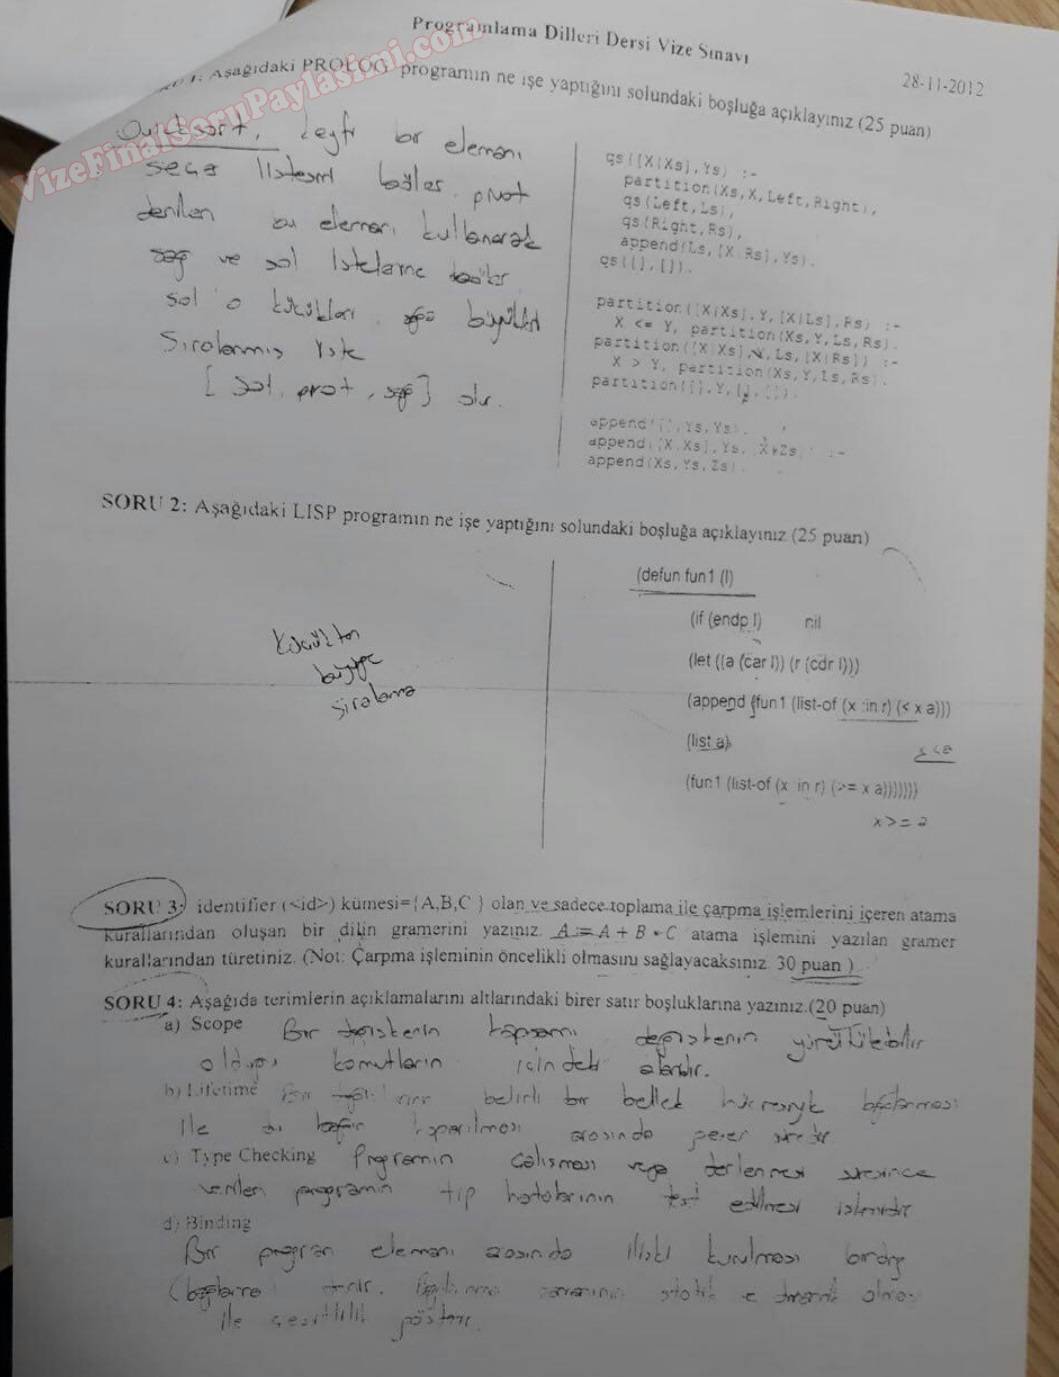 Programlama Dilleri Dersi Vize Sınavı
28-11-2012
VizeFinalSoruPaylasimi.com
1: Aşağıdaki PROLOG programın ne işe yaptığını solundaki boşluğa açıklayınız (25 puan)
Quicksort, keyfi bir elemanı
seçer listesini böler. pivot
denilen bu elemanı kullanarak
sağ ve sol listelerine böler
sol'a küçükleri, büyükleri
Sıralanmış liste
[sol, pivot, sağ] olur.
qs([X|Xs],Ys) :-
partition(Xs,X,Left,Right),
qs(Left,Ls),
qs(Right,Rs),
append(Ls,[X|Rs],Ys).
qs([],[]).
partition([X|Xs],Y,[X|Ls],Rs) :-
X <= Y, partition(Xs,Y,Ls,Rs).
partition([X|Xs],Y,Ls,[X|Rs]) :-
X > Y, partition(Xs,Y,Ls,Rs).
partition([],Y,[],[]).
append([],Ys,Ys).
append([X|Xs],Ys,[X|Zs]) :-
append(Xs,Ys,Zs).
SORU 2: Aşağıdaki LISP programın ne işe yaptığını solundaki boşluğa açıklayınız (25 puan)
Küçükten
büyüğe
sıralama
(defun fun1 (l)
(if (endp l) nil
(let ((a (car l)) (r (cdr l)))
(append (fun1 (list-of (x :in r) (< x a)))
(list a)
x < a
(fun1 (list-of (x :in r) (>= x a)))))))
x >= a
SORU 3: identifier (<id>) kümesi={A,B,C } olan ve sadece toplama ile çarpma işlemlerini içeren atama
kurallarından oluşan bir dilin gramerini yazınız. A := A + B * C atama işlemini yazılan gramer
kurallarından türetiniz. (Not: Çarpma işleminin öncelikli olmasını sağlayacaksınız. 30 puan )
SORU 4: Aşağıda terimlerin açıklamalarını altlarındaki birer satır boşluklarına yazınız.(20 puan)
a) Scope Bir değişkenin kapsamı değişkenin yürütülebilir
olduğu komutların içindeki alandır.
b) Lifetime Bir belirli bir bellek hücresiyle bağlanması
ile bu bağın koparılması arasında geçen süredir
c) Type Checking Programın çalışması veya derlenmesi süresince
verilen programın tip hatalarının test edilmesi işlemidir
d) Binding
Bir program elemanı arasında ilişki kurulması
(bağlama) denir. Bağlanma zamanının statik ve dinamik olması
ile çeşitlilik gösterir.